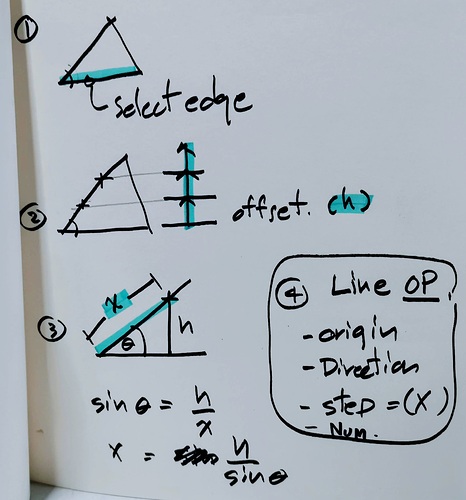 ①
select edge
②
offset. (h)
③
x
h
θ
sin θ = h/x
x = h/sin θ
④ Line OP.
- origin
- Direction
- step = (X)
- Num.